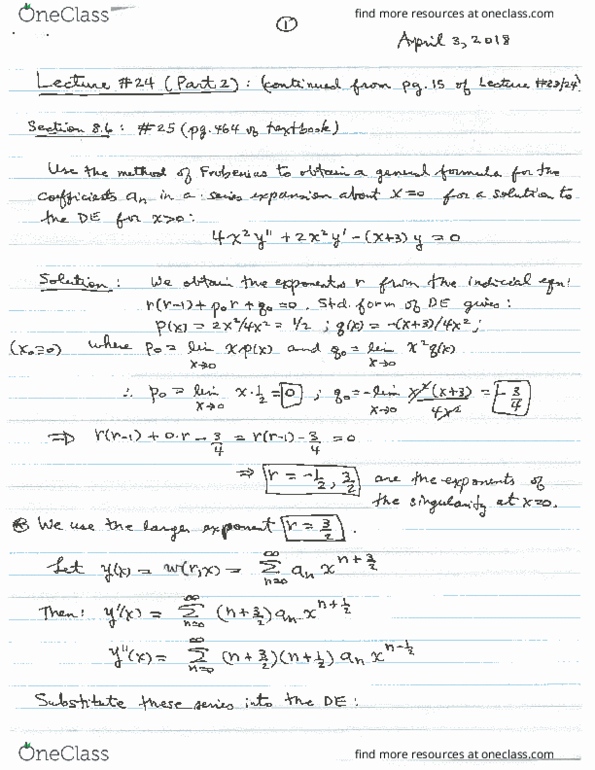 OneClass
find more resources at oneclass.com
①
April 3, 2018
Lecture #24 (Part 2): (continued from pg. 15 of Lecture #23/24)
Section 8.6: #25 (pg. 464 of textbook)
Use the method of Frobenius to obtain a general formula for the
coefficients aₙ in a series expansion about x=0 for a solution to
the DE for x>0:
4x²y'' + 2x²y' - (x+3)y = 0
Solution: We obtain the exponents r from the indicial eqn:
r(r-1) + p₀r + q₀ = 0. Std. form of DE gives:
p(x) = 2x²/4x² = 1/2 ; q(x) = -(x+3)/4x² ;
(x₀=0) where p₀ = lim x→0 x p(x) and q₀ = lim x→0 x² q(x)
∴ p₀ = lim x→0 x·1/2 = 0 ; q₀ = -lim x→0 x²(x+3)/4x² = -3/4
⇒ r(r-1) + 0·r - 3/4 = r(r-1) - 3/4 = 0
⇒ r = -1/2, 3/2 are the exponents of
the singularity at x=0.
⊛ We use the larger exponent r = 3/2.
Let y(x) = w(r,x) = ∞Σn=0 aₙ x^(n+3/2)
Then: y'(x) = ∞Σn=0 (n+3/2) aₙ x^(n+1/2)
y''(x) = ∞Σn=0 (n+3/2)(n+1/2) aₙ x^(n-1/2)
Substitute these series into the DE:
OneClass
find more resources at oneclass.com